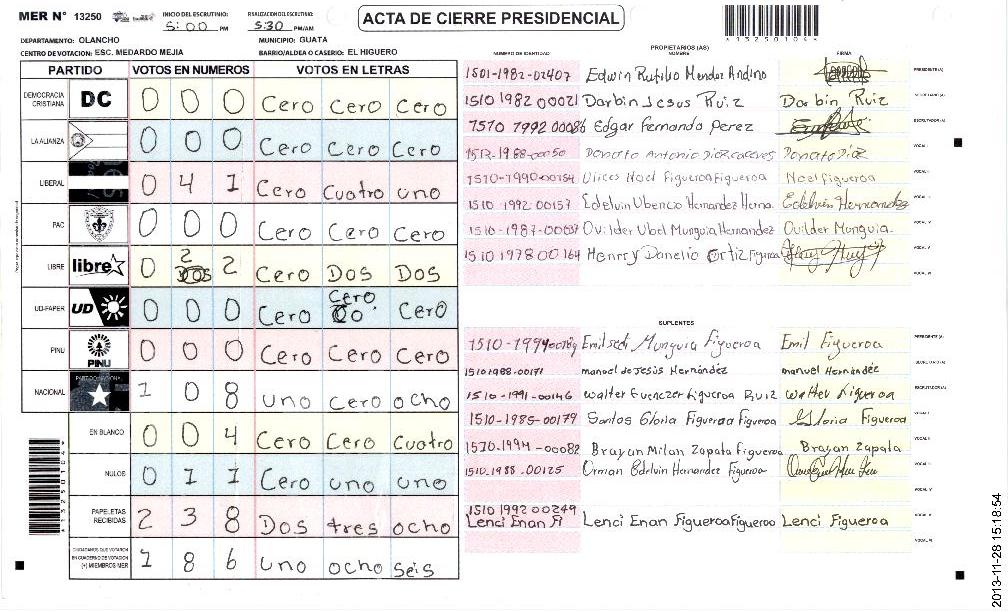 MER N° 13250
INICIO DEL ESCRUTINIO: 5:00 PM
FINALIZACION DEL ESCRUTINIO: 5:30 PM/AM
ACTA DE CIERRE PRESIDENCIAL
*13250104*
DEPARTAMENTO: OLANCHO
MUNICIPIO: GUATA
CENTRO DE VOTACION: ESC. MEDARDO MEJIA
BARRIO/ALDEA O CASERIO: EL HIGUERO
PARTIDO VOTOS EN NUMEROS VOTOS EN LETRAS
DEMOCRACIA CRISTIANA DC 0 0 0 Cero Cero Cero
LA ALIANZA 0 0 0 Cero Cero Cero
LIBERAL 0 4 1 Cero Cuatro uno
PAC 0 0 0 Cero Cero Cero
LIBRE libre 0 2 2 Cero DOS DOS
UD-FAPER UD 0 0 0 Cero Cero Cero
PINU PINU 0 0 0 Cero Cero Cero
NACIONAL 1 0 8 uno cero ocho
EN BLANCO 0 0 4 Cero Cero Cuatro
NULOS 0 1 1 Cero uno uno
PAPELETAS RECIBIDAS 2 3 8 Dos tres ocho
CIUDADANOS QUE VOTARON EN CUADERNO DE VOTACION (+) MIEMBROS MER 1 8 6 uno ocho seis
PROPIETARIOS (AS)
NUMERO DE IDENTIDAD NOMBRE FIRMA
1501-1982-02407 Edwin Rufilio Mendez Andino PRESIDENTE(A)
1510 1982 00021 Darbin Jesus Ruiz Darbin Ruiz SECRETARIO(A)
Edgar Fernando Perez ESCRUTADOR(A)
1512-1988-00050 Donato Antonio Diaz caceres Donato Diaz VOCAL I
1510-1990-00154 Ulices Noel Figueroa Figueroa Noel figueroa
1510 1992 00157 Edelvin Ubencio Hernandez Herna. Edelvin Hernandez
Ovilder Ubel Munguia Hernandez Ovilder Munguia.
1510 1978 00164 Henrry Danelio Ortiz Figueroa
SUPLENTES
Munguia Figueroa Emil Figueroa PRESIDENTE (A)
1510 1988-00171 manuel de Jesús Hernández manuel Hernández SECRETARIO(A)
1510-1991-00146 Walter Evenezer Figueroa Ruiz Walter Figueroa ESCRUTADOR(A)
1510-1985-00179 Santos Gloria Figueroa Figueroa Gloria Figueroa
1510-1994-00082 Brayan Milan Zapata Figueroa Brayan Zapata
1510-1988-00125 Orman Edelvin Hernandez Figueroa
1510 1992 00249
Lenci Enan Lenci Enan Figueroa Figueroa Lenci Figueroa
2013-11-28 15:18:54